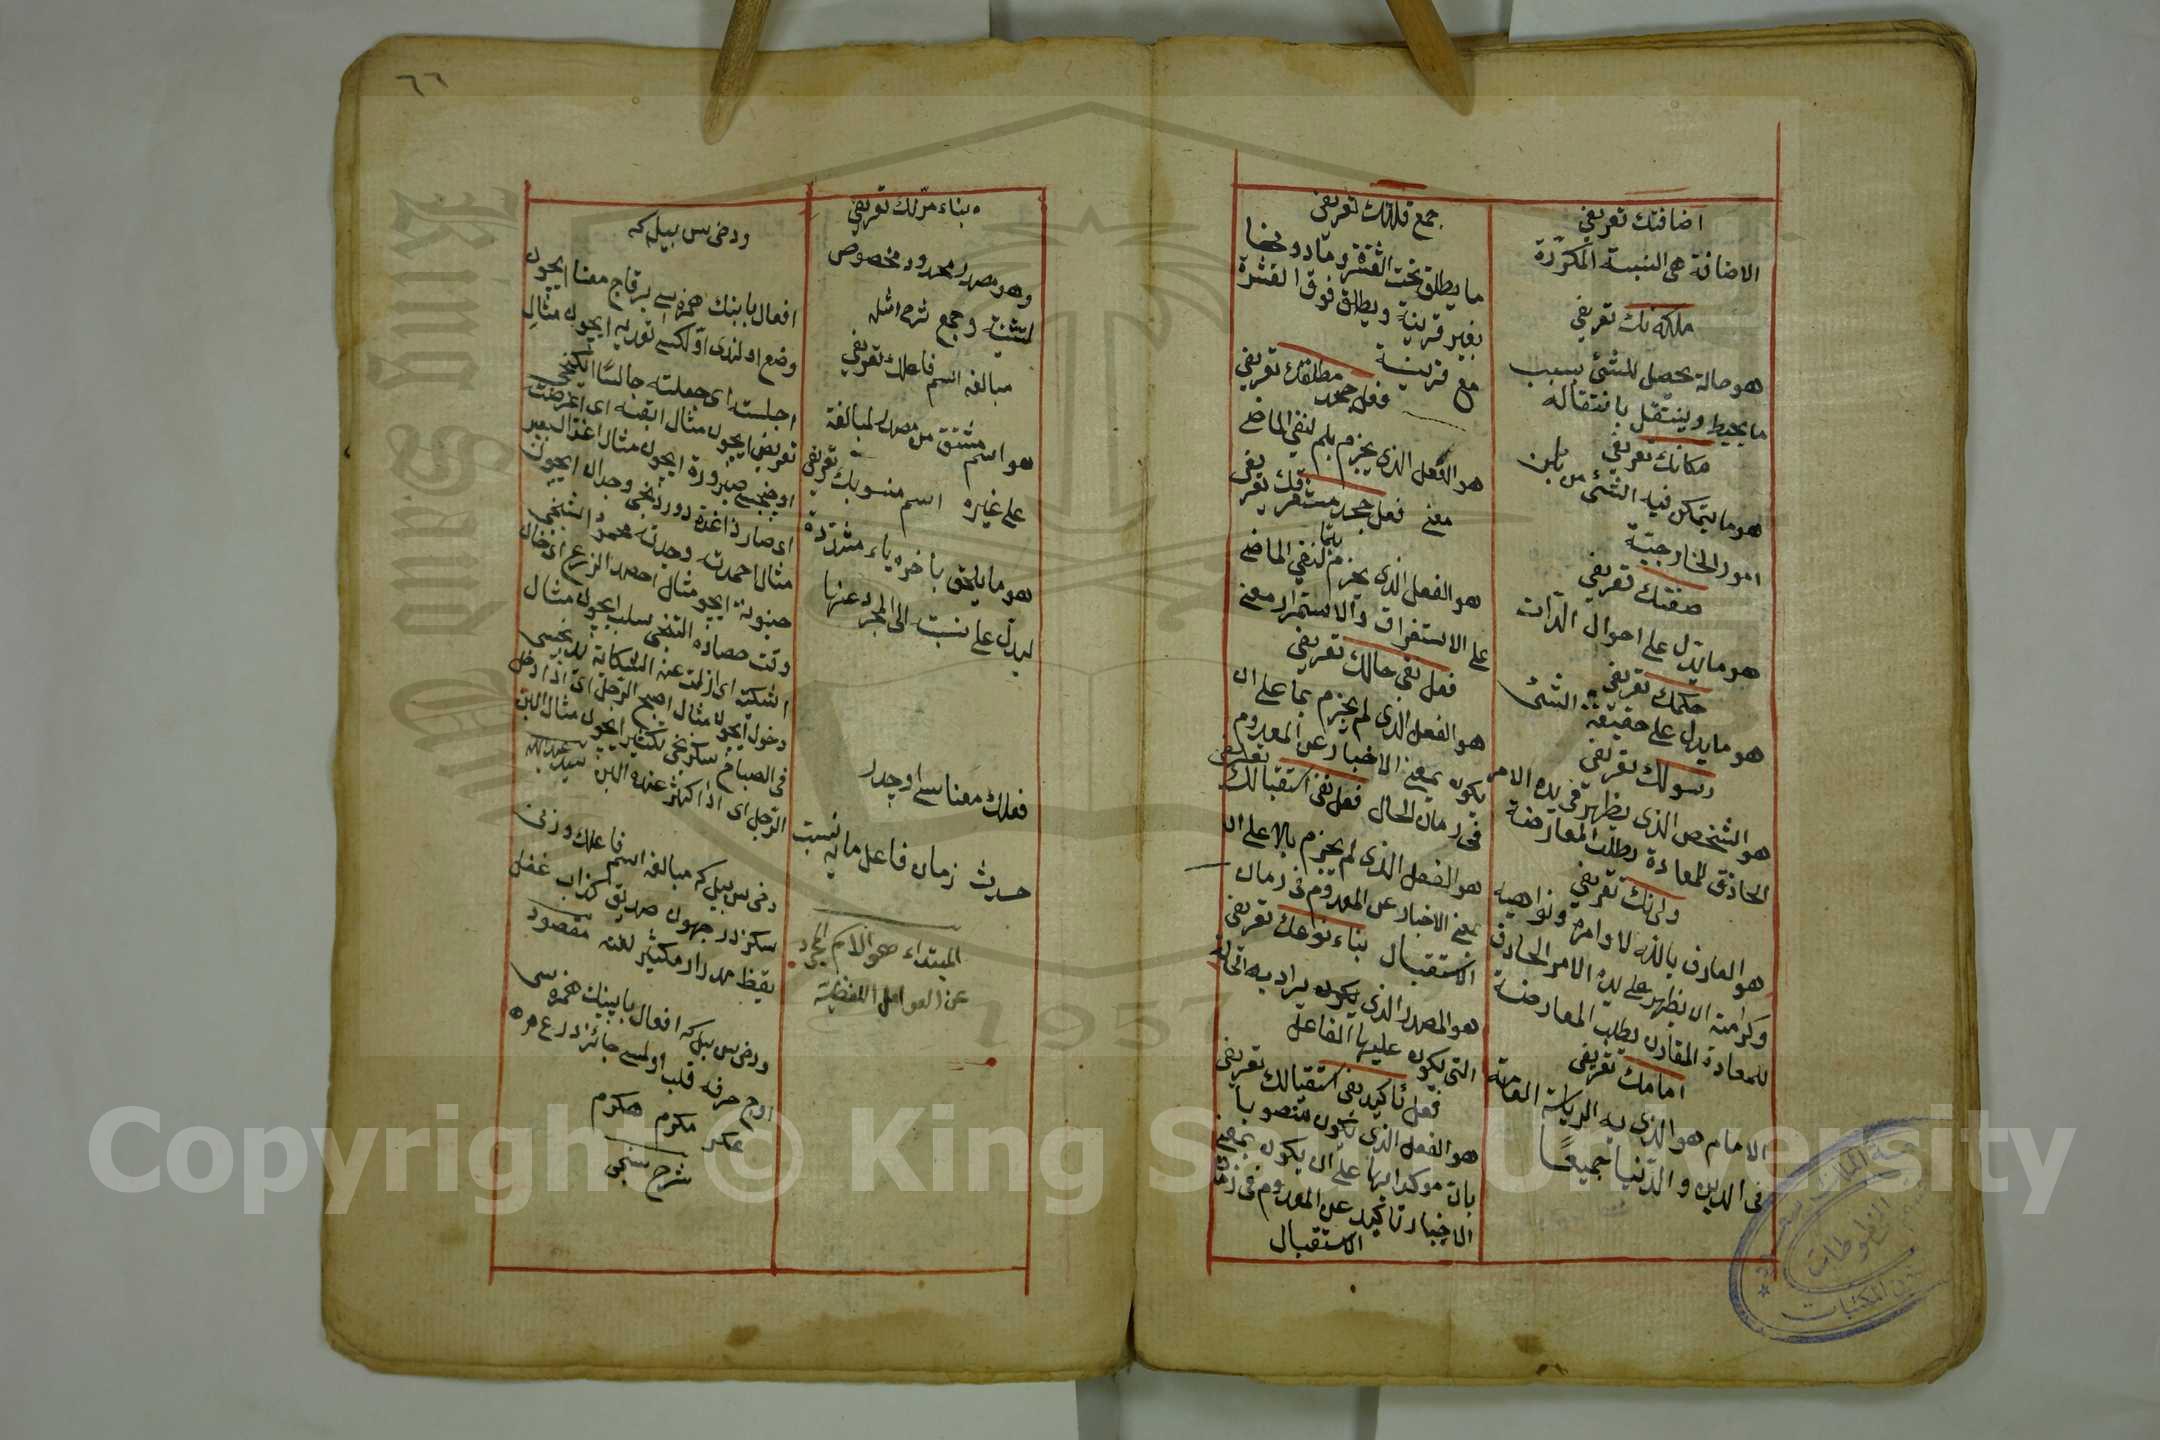 اضافتك تعريفى
الاضافة هى النسبة المكررة
ملكه نك تعريفى
هو حالة يحصل للشئ بسبب
ما يحيط وينتقل بانتقاله
مكانك تعريفى
هو ما يتمكن فيه الشئ من
امور الخارجية
صفتك تعريفى
هو ما يدل على احوال الذات
حكمك تعريفى
هو ما يدل على حقيقة الشئ
رسولك تعريفى
هو الشخص الذى يظهر فى يده الامر
الخاذق للعادة يطلب المعارضة
ولى نك تعريفى
هو العارف بالله لاوامره ونواهيه
وكرامته ان يظهر على يده الامر الخارق
للعادة المقارن يطلب المعارضة
امامك تعريفى
الامام هو الذى به الرياسة العامة
فى الدين والدنيا جميعًا
جمع قلتك تعريفى
ما يطلق تحت العشرة وما دونها
بغير قرينة ويطلق فوق العشرة
مع قرينة
فعل جحد مطلقك تعريفى
هو الفعل الذى يجزم بلم لنفى الماضى
معنى
فعل جحد مستغرقك تعريفى
هو الفعل الذى يجزم بلما لنفى الماضى
على الاستغراق والاستمرار معنى
فعل نفى حالك تعريفى
هو الفعل الذى لم يجزم بما على ان
يكون بمعنى الاخبار عن المعدوم
فى زمان الحال
فعل نفى استقبالك تعريفى
هو الفعل الذى لم يجزم بلا على ان
بمعنى الاخبار عن المعدوم فى زمان
الاستقبال
بناء نوعك تعريفى
هو المصدر الذى يكون يراد به الحالة
التى يكون عليها الفاعل
فعل تأكيد نفى استقبالك تعريفى
هو الفعل الذى يكون منصوبا
بان موكدا بها على ان يكون بمعنى
الاخبار تأكيد عن المعدوم فى زمان
الاستقبال
٦٦
بناء مرّه نك تعريفى
وهو مصدر محدود مخصوص
لتثنية وجمع شرح امثله
مبالغه اسم فاعلك تعريفى
هو اسم مشتق من مصدر لمبالغة
على غيره
اسم منسوبك تعريفى
هو ما يلحق باخره ياء مشددة
ليدل على نسبت الى المجرد عنها
فعلك معناسى اوچدر
حدث زمان فاعل مايه نسبت
المبتداء هو الاسم المجرد
عن العوامل اللفظية
ودخى بيل كه
افعال بابنك همزه سى برقاج معنا ايچون
وضع اولندى اولكسى تعديه ايچون مثال
اجلسته اى جعلته جالسًا ايكنجى
تعريض ايچون مثال ابعته اى اعرضت
اوچنجى صيرورة ايچون مثال اغد البعير
اى صار ذا غدة دوردنجى وجدان ايچون
مثال احمدته وجدته محمودا بشنجى
حينونة ايچون مثال احصد الزرع اى حان
وقت حصاده التنجى سلب ايچون مثال
اشكيته اى ازلت عنه الشكاية يدنجسى
دخول ايچون مثال اصبح الرجل اى اذا دخل
فى الصباح سكزنجى تكثير ايچون مثال البن
الرجل اى اذا كثر عنده اللبن سيد عبدالله
دخى بيل كه مبالغه اسم فاعلك وزنى
سكزدر جهول صديق كذاب غفل
يقظ مدرار مكثير لعنه مقصود
ودخى بيل كه افعال بابينك همزه سى
اوچ حرفه قلب اولمسى جائزدر ع م ه
عكرم مكرم هكرم
شرح سنجى